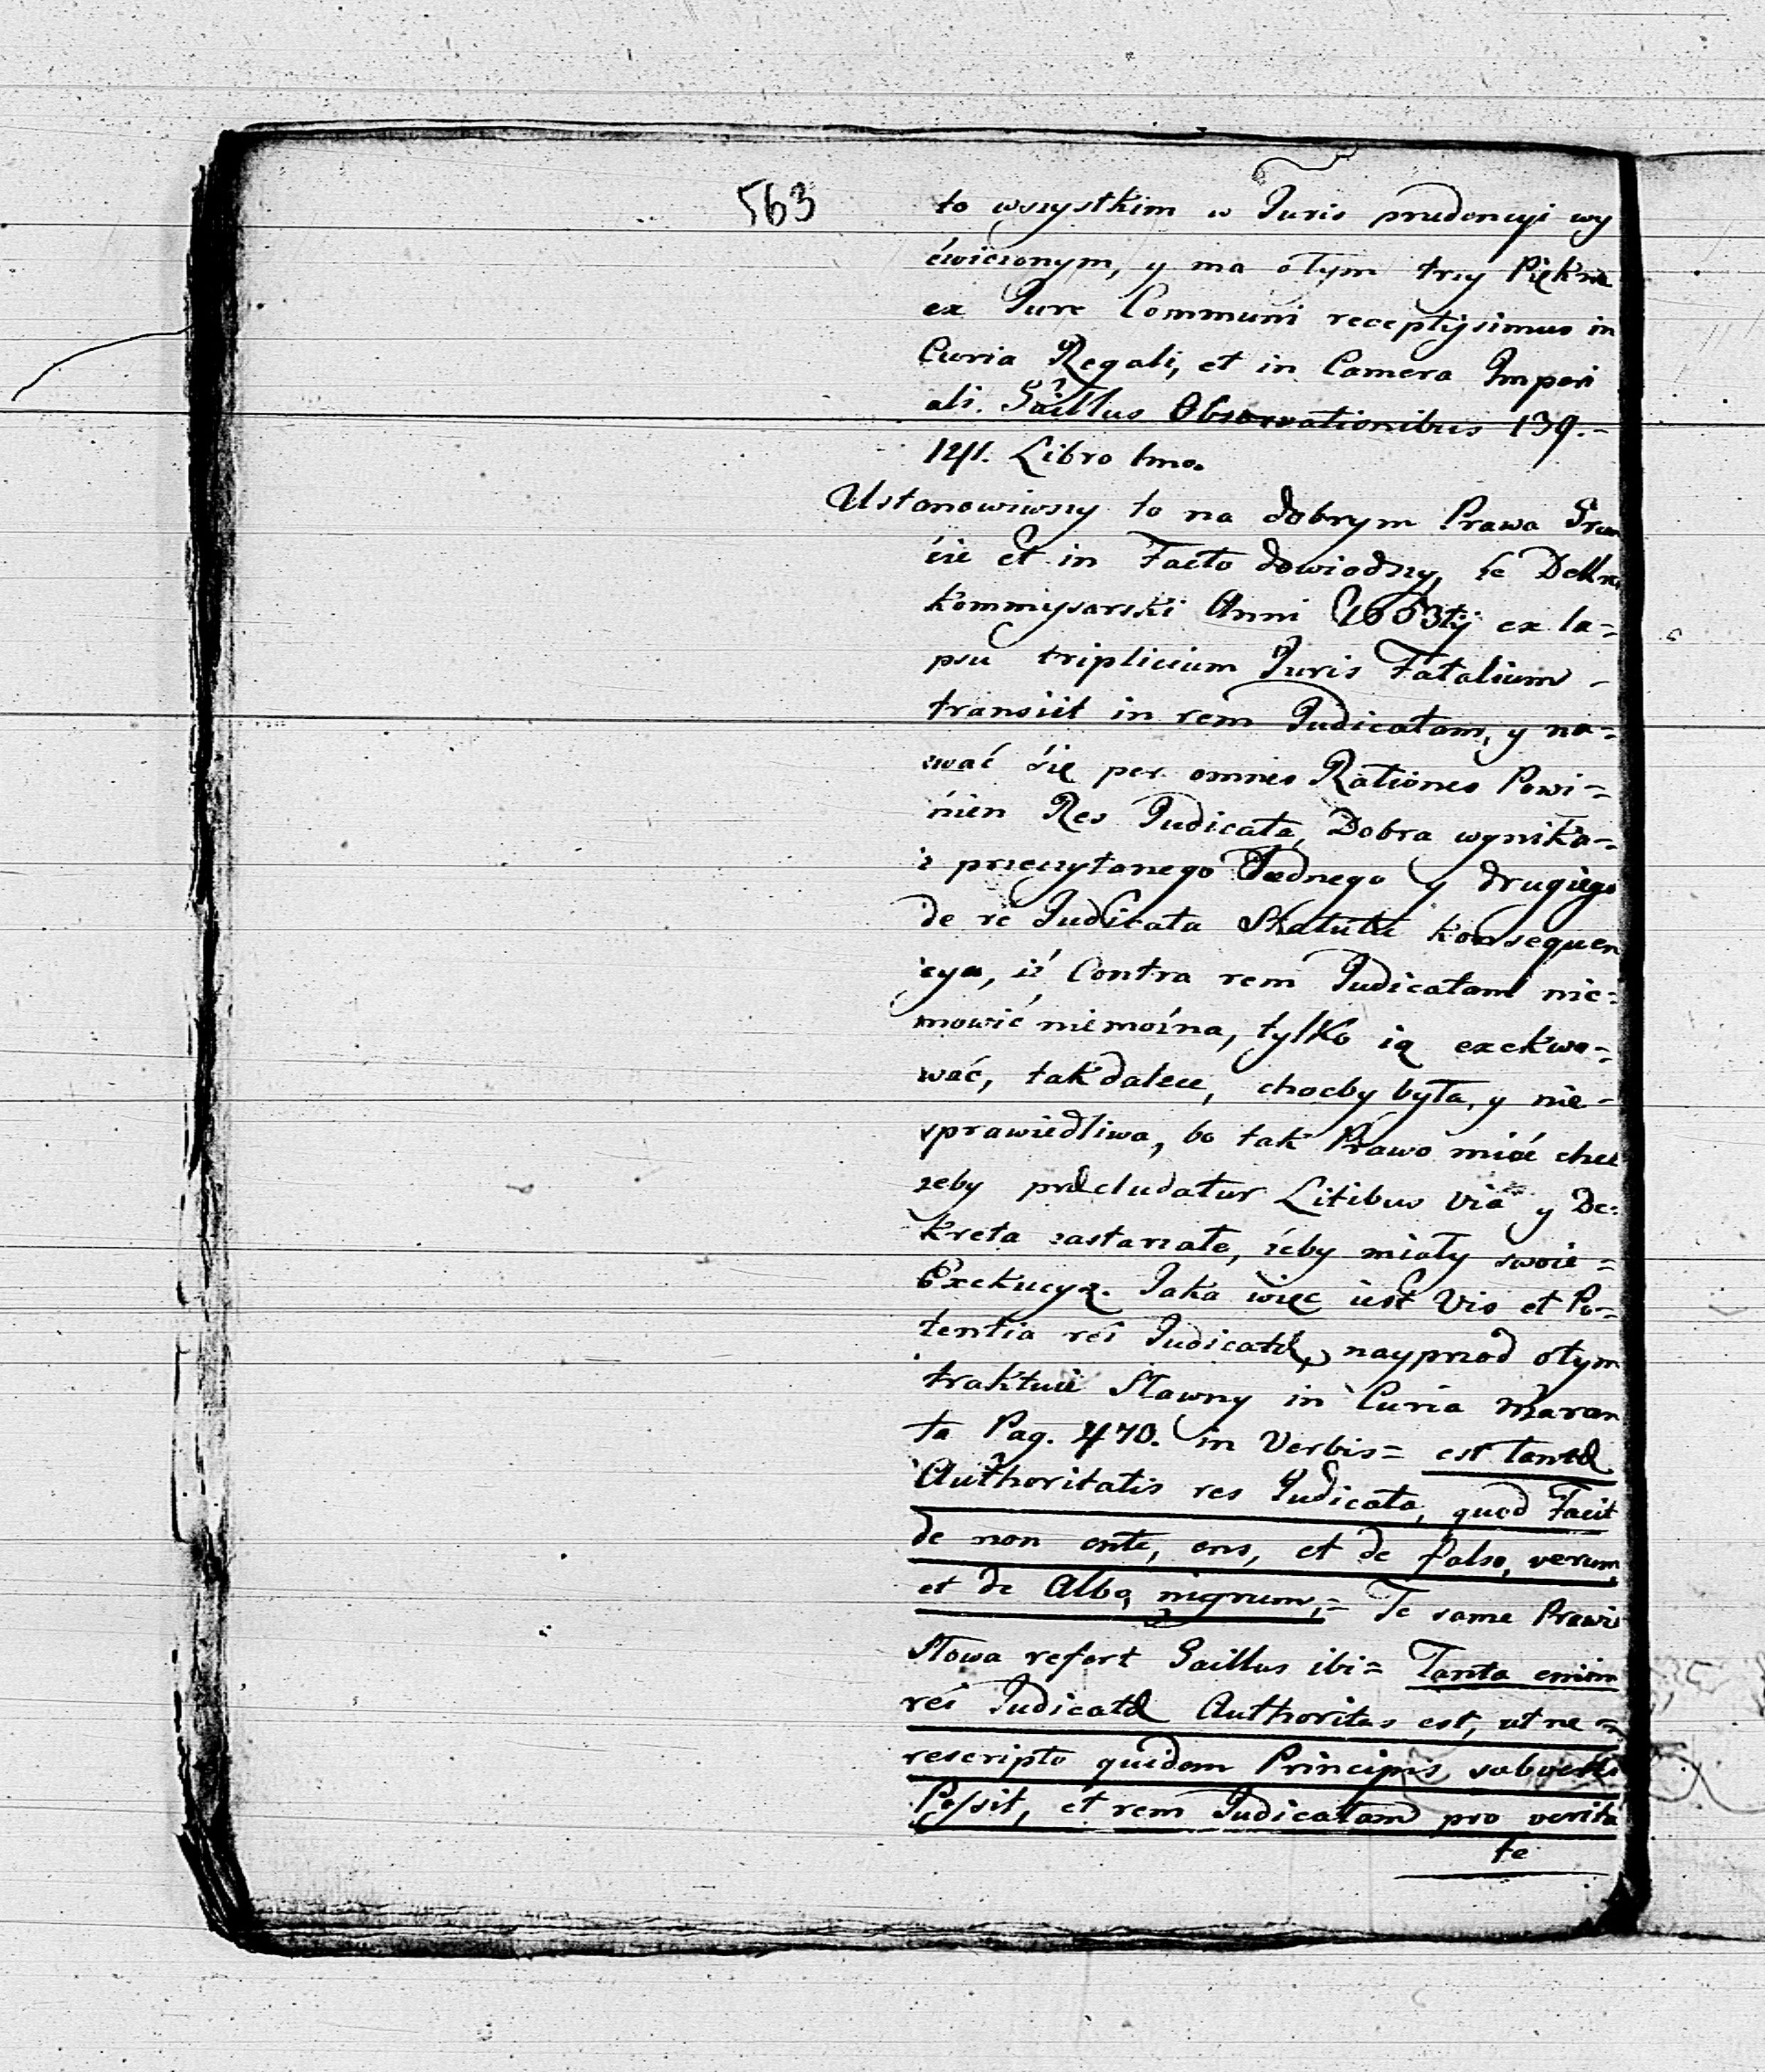 563
to wszystkim w Juris prudencyi wy
ćwiczonym, y ma o tym trzy Piękne
ex Jure Communi receptissimus in
Curia Regali, et in Camera Imperi
ali. Gaillus Observationibus 139.-
Libro Imo.
Ustanowiwszy to na dobrym Prawa Grun
cie et in Facto dowiodszy, że
kommysarski Anni ex la=
psu triplicium Juris Fatalium -
transiit in rem Judicatam, y na=
zwać się per omnes Rationes Powi=
nien Res Judicata, Dobra wynika=
z przeczytanego Jednego y drugiego
de re Judicata Statutu konsequen
cya, iż Contra rem Judicatam nic=
mowić niemożna, tylko ią exekwo=
wać, tak dalece, choćby była, y nie-
sprawiedliwa, bo tak Prawo mieć chce
żeby præcludatur Litibus via y De=
kreta zastarzałe, żeby miały swoie=
Exekucyą. Jaka więc iest Vis et Po=
tentia rei Judicatæ, nayprzod o tym
traktuie Sławny in Curia Maran
ta Pag. 470. in Verbis= est tantæ
Authoritatis res Judicata, quod Facit
de non ente, ens, et de falso, verum
et de Albo, nigrum,= Te same Prawie
Słowa refert Gaillus ibi= Tanta enim
rei Judicatæ Authoritas est, ut ne=
rescripto quidem Principis subverti
Possit, et rem Judicatam pro verita
te